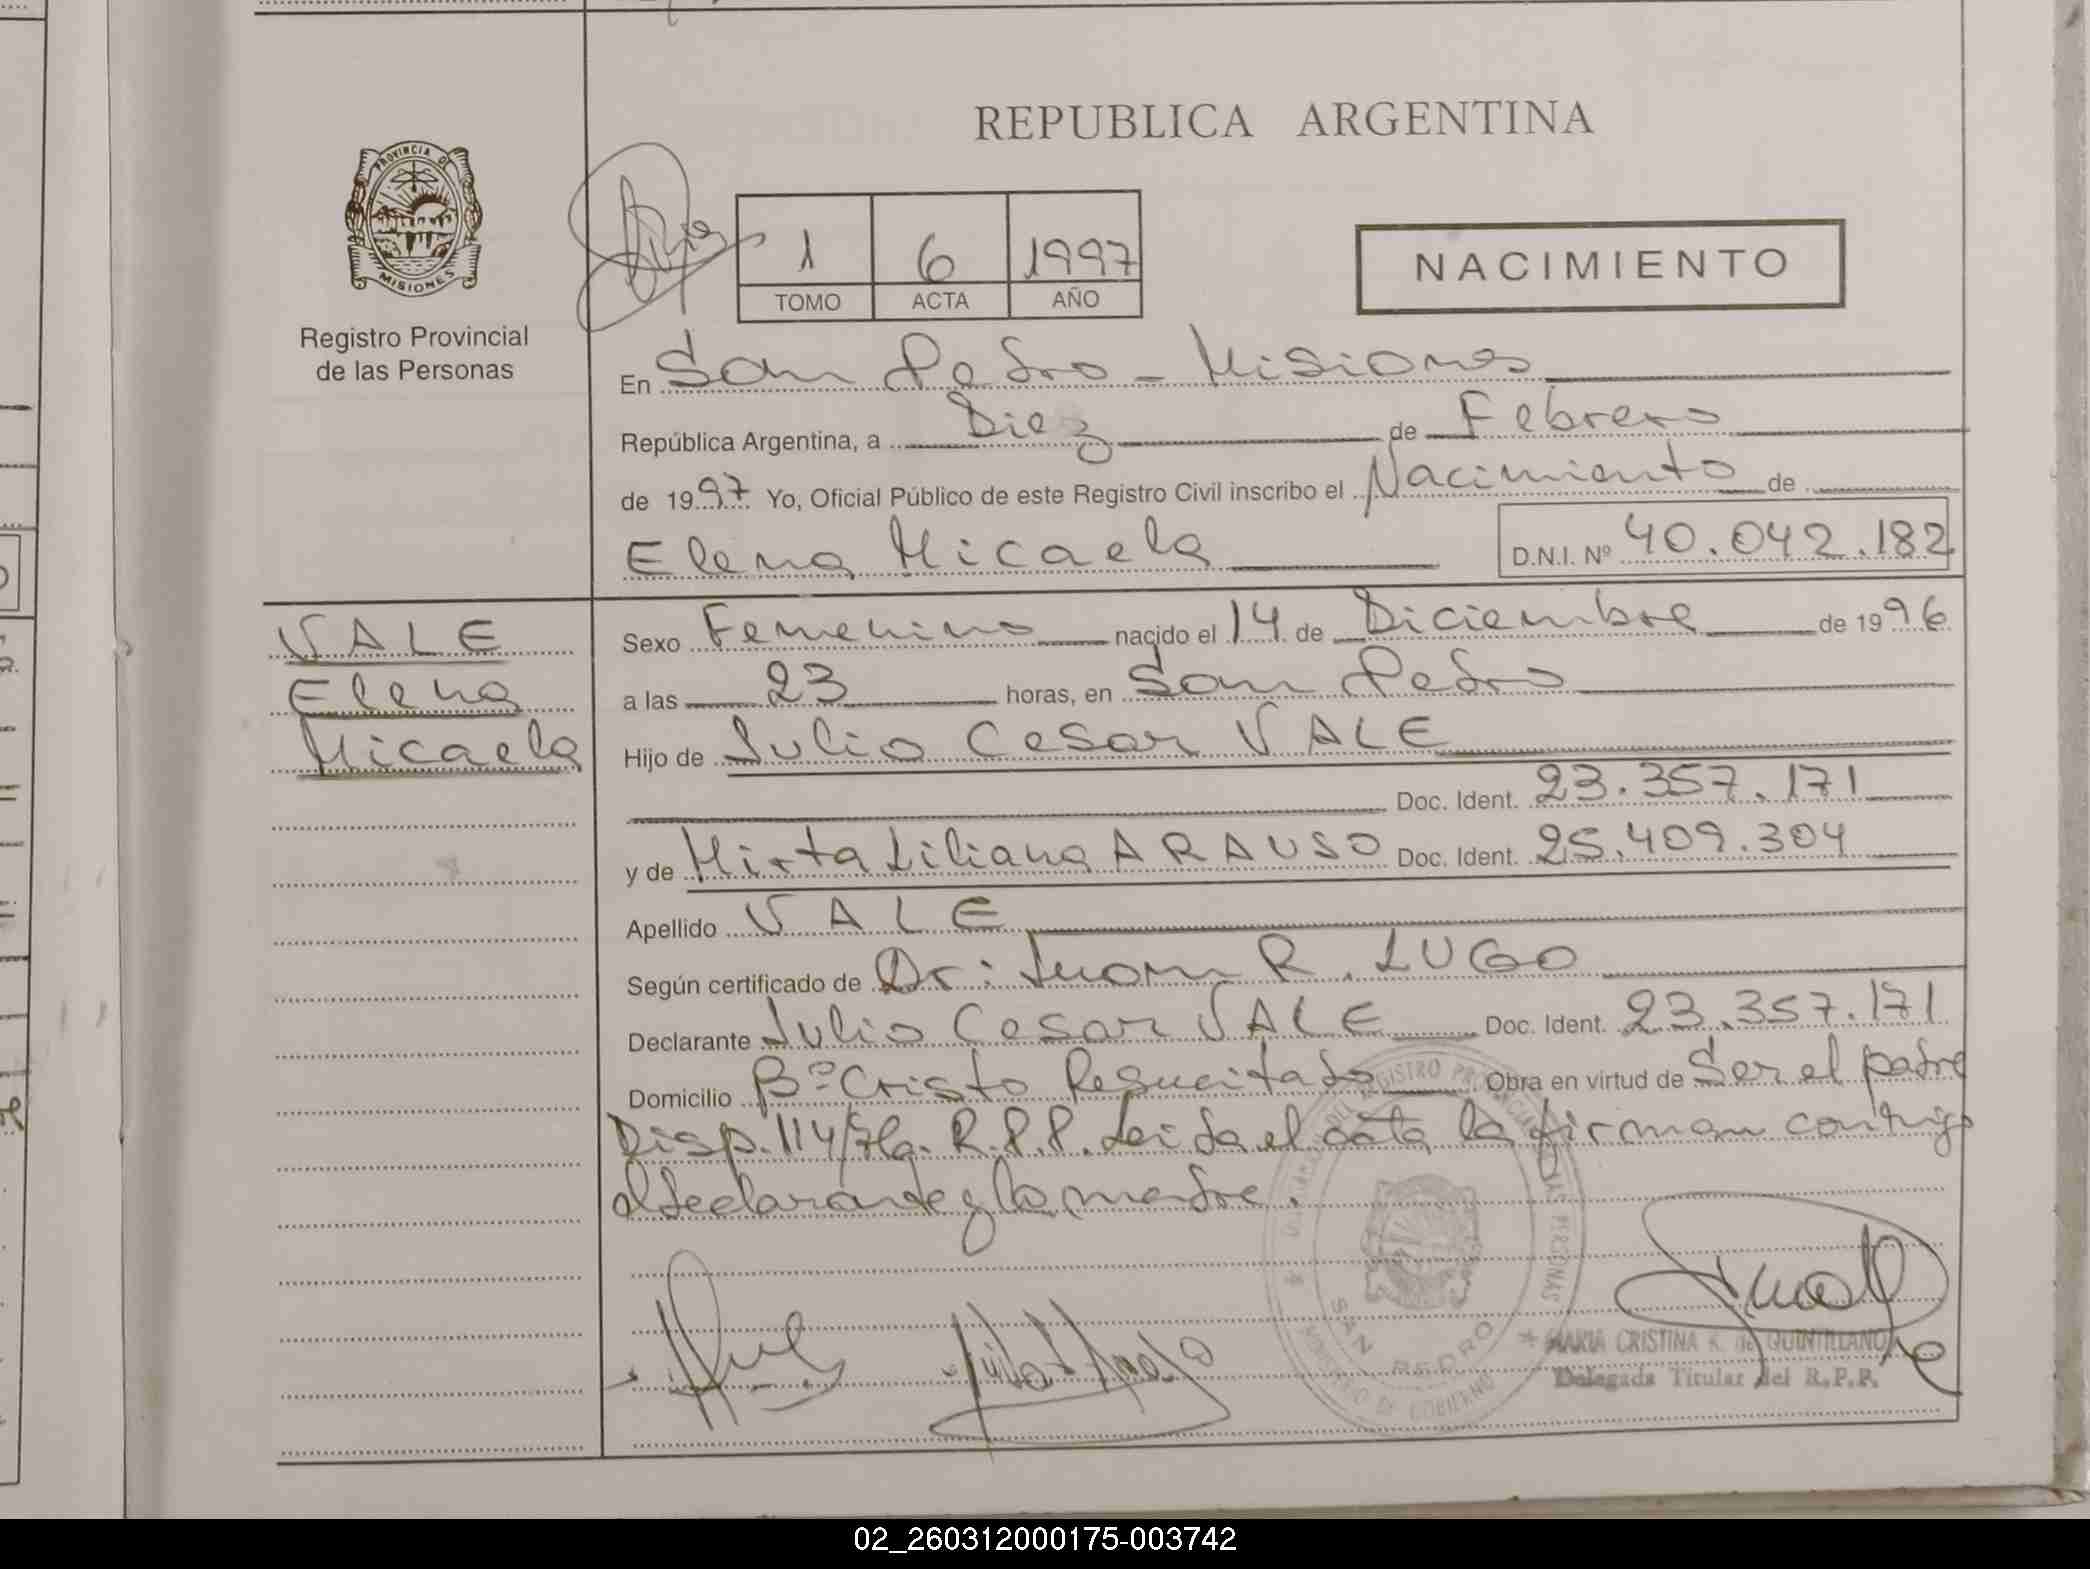 REPUBLICA ARGENTINA
PROVINCIA DE
MISIONES
Registro Provincial
de las Personas
1 6 1997
TOMO ACTA AÑO
NACIMIENTO
En San Pedro - Misiones
República Argentina, a Diez de Febrero
de 1997 Yo, Oficial Público de este Registro Civil inscribo el Nacimiento de
Elena Micaela D.N.I. Nº 40.042.182
VALE
Elena
Micaela
Sexo Femenino nacido el 14 de Diciembre de 1996
a las 23 horas, en San Pedro
Hijo de Julio Cesar VALE
Doc. Ident. 23.357.171
y de Mirta Liliana ARAUSO Doc. Ident. 25.409.304
Apellido VALE
Según certificado de Dr: Juan R. LUGO
Declarante Julio Cesar VALE Doc. Ident. 23.357.171
Domicilio Bº Cristo Resucitado Obra en virtud de Ser el padre
Disp. 114/ R.P.P. Leida el acta la firman contigo
el declarante y la madre.
SAN PEDRO
MARIA CRISTINA K. de QUINTILLANO
Delegada Titular del R.P.P.
02_260312000175-003742